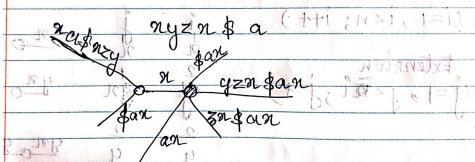 xyzx$ a
$ax
x
yzx$ax
$ax
zx$ax
ax